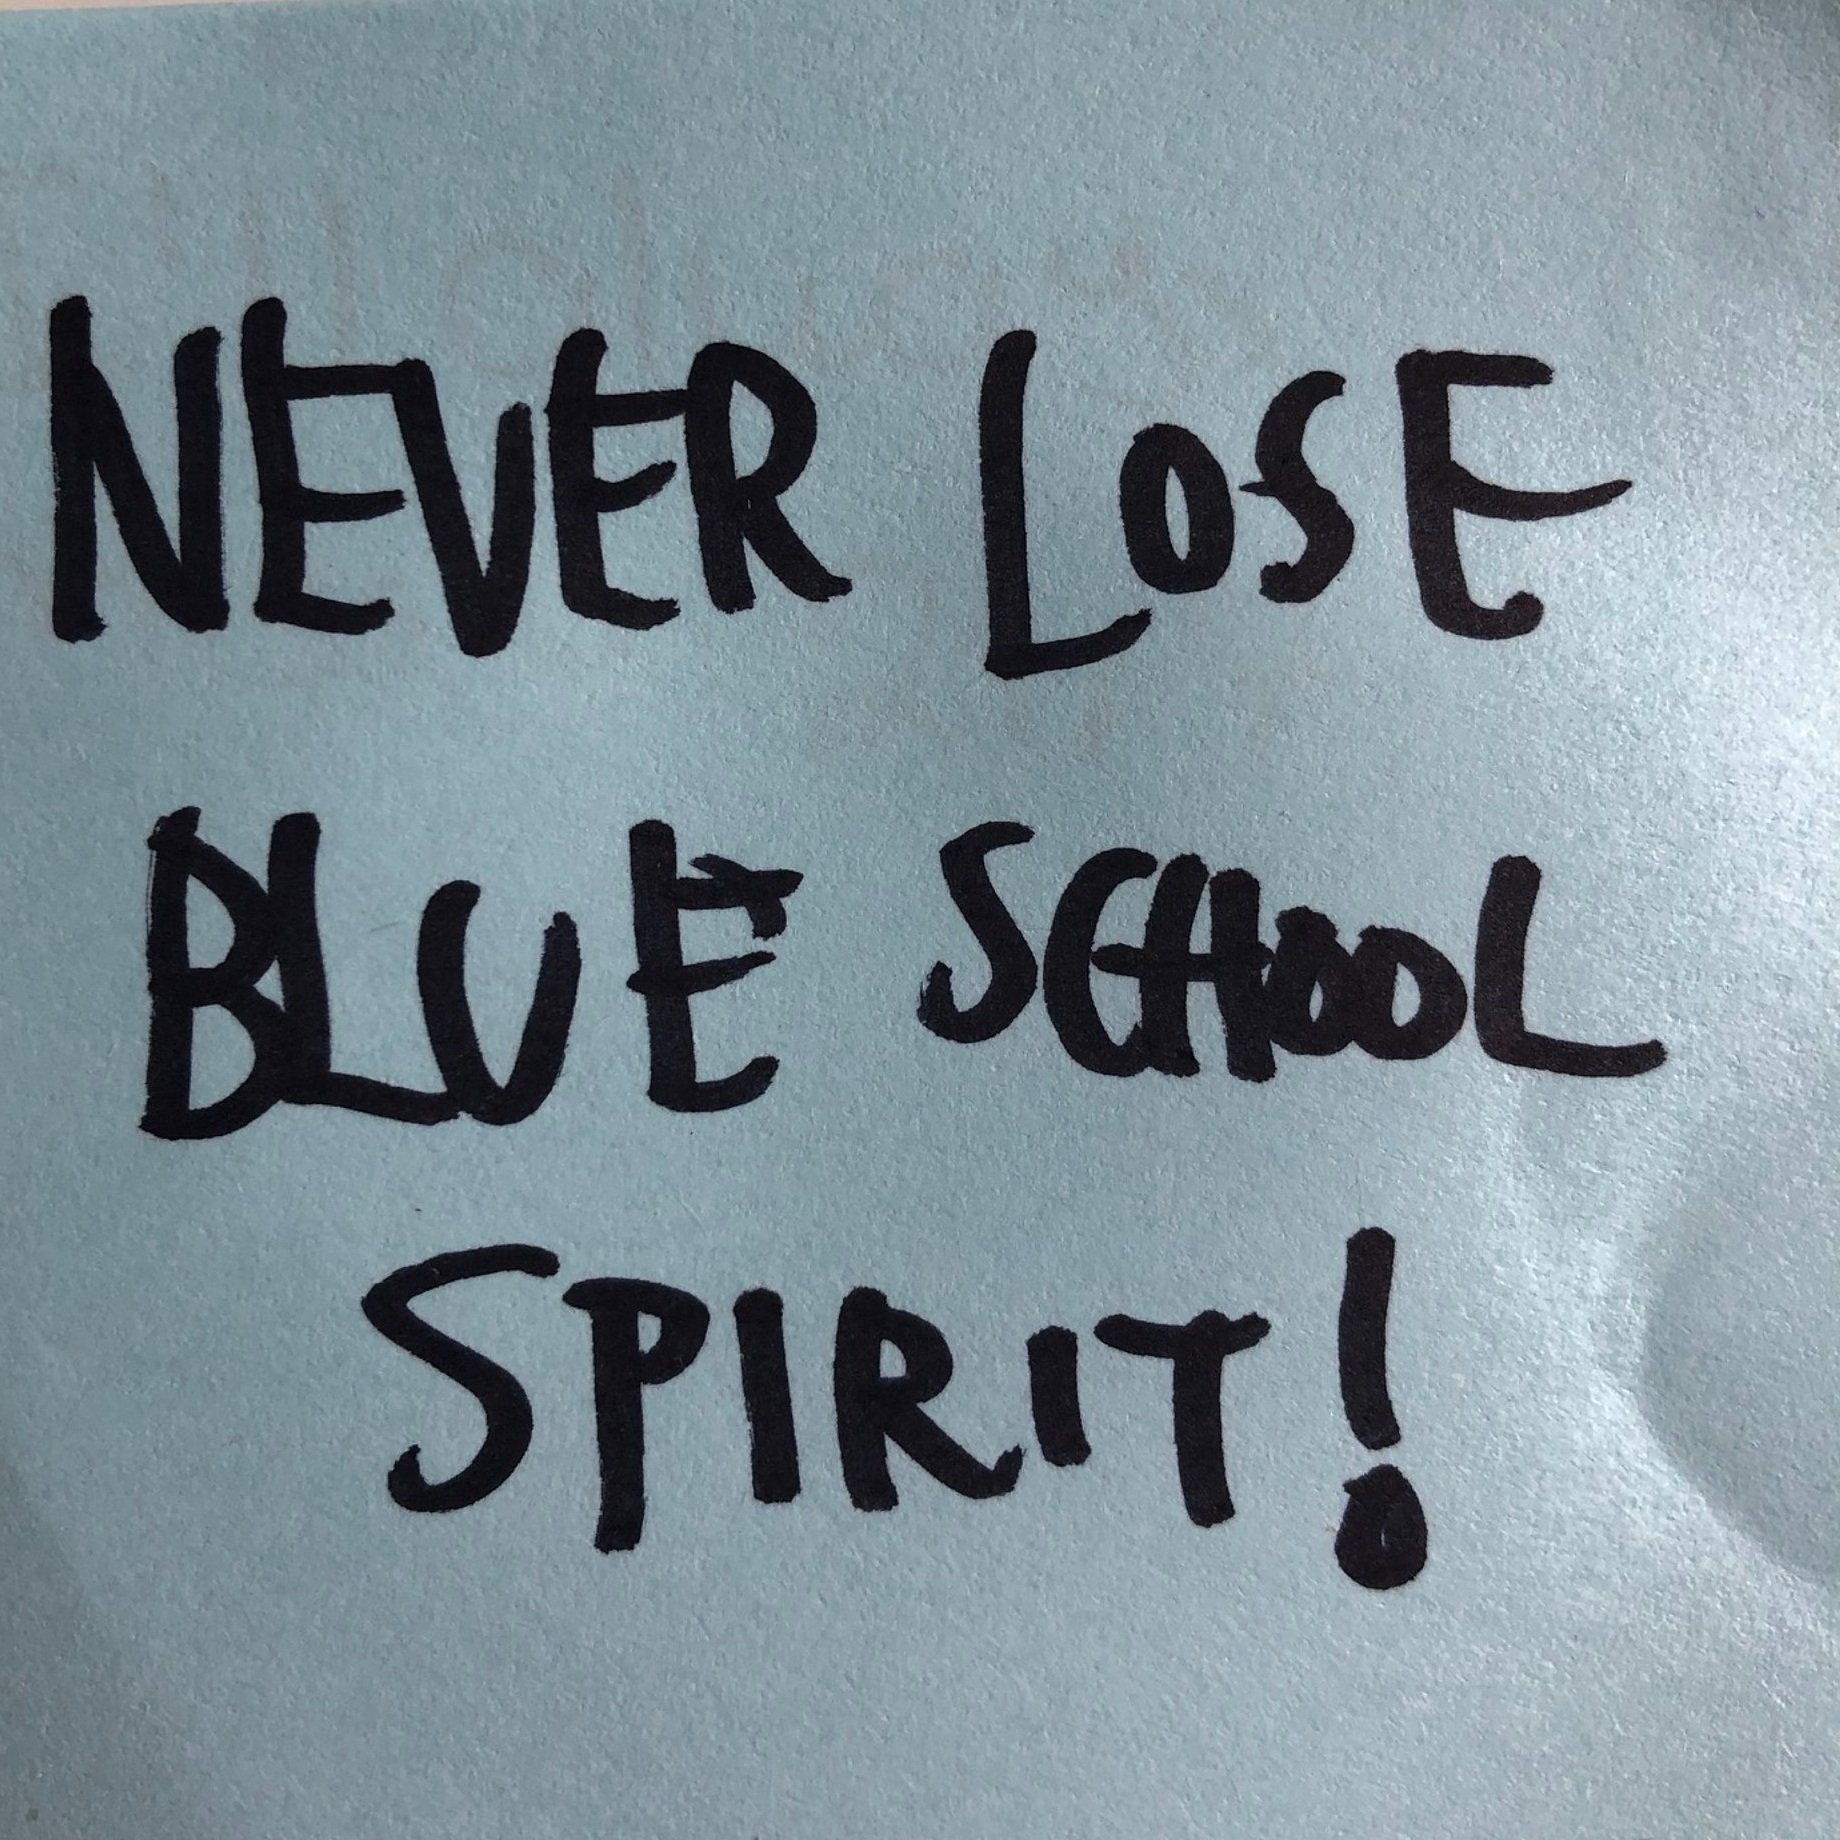 NEVER LOSE
BLUE SCHOOL
SPIRIT!